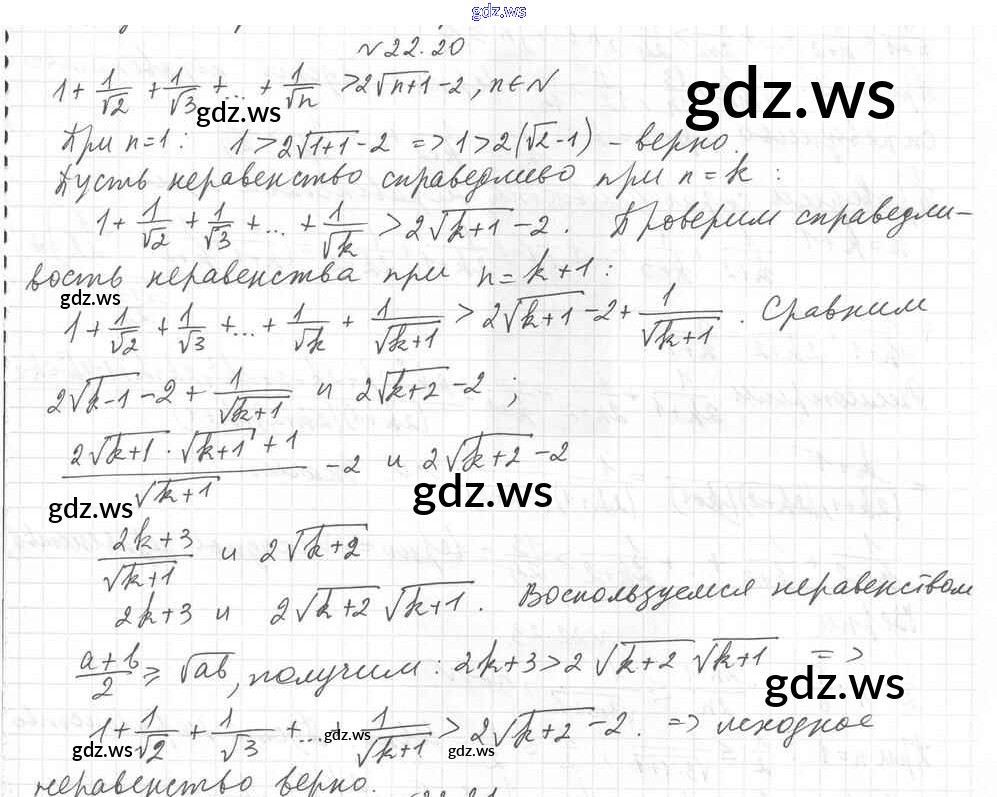 gdz.ws
№22.20
1+1/√2+1/√3+...+1/√n >2√(n+1)-2, n∈N
gdz.ws
gdz.ws
При n=1: 1>2√(1+1)-2 => 1>2(√2-1) - верно.
Пусть неравенство справедливо при n=k:
1+1/√2+1/√3+...+1/√k >2√(k+1)-2. Проверим справедли-
вость неравенства при n=k+1:
gdz.ws
1+1/√2+1/√3+...+1/√k+1/√(k+1) >2√(k+1)-2+1/√(k+1). Сравним
2√(k-1)-2+1/√(k+1) и 2√(k+2)-2;
(2√(k+1)·√(k+1)+1)/√(k+1) -2 и 2√(k+2)-2
gdz.ws
gdz.ws
(2k+3)/√(k+1) и 2√(k+2)
2k+3 и 2√(k+2)√(k+1). Воспользуемся неравенством
(a+b)/2 ≥ √ab, получим: 2k+3>2√(k+2)√(k+1) =>
gdz.ws
1+1/√2+1/√3+...+1/√(k+1) >2√(k+2)-2. => исходное
gdz.ws
gdz.ws
gdz.ws
неравенство верно.